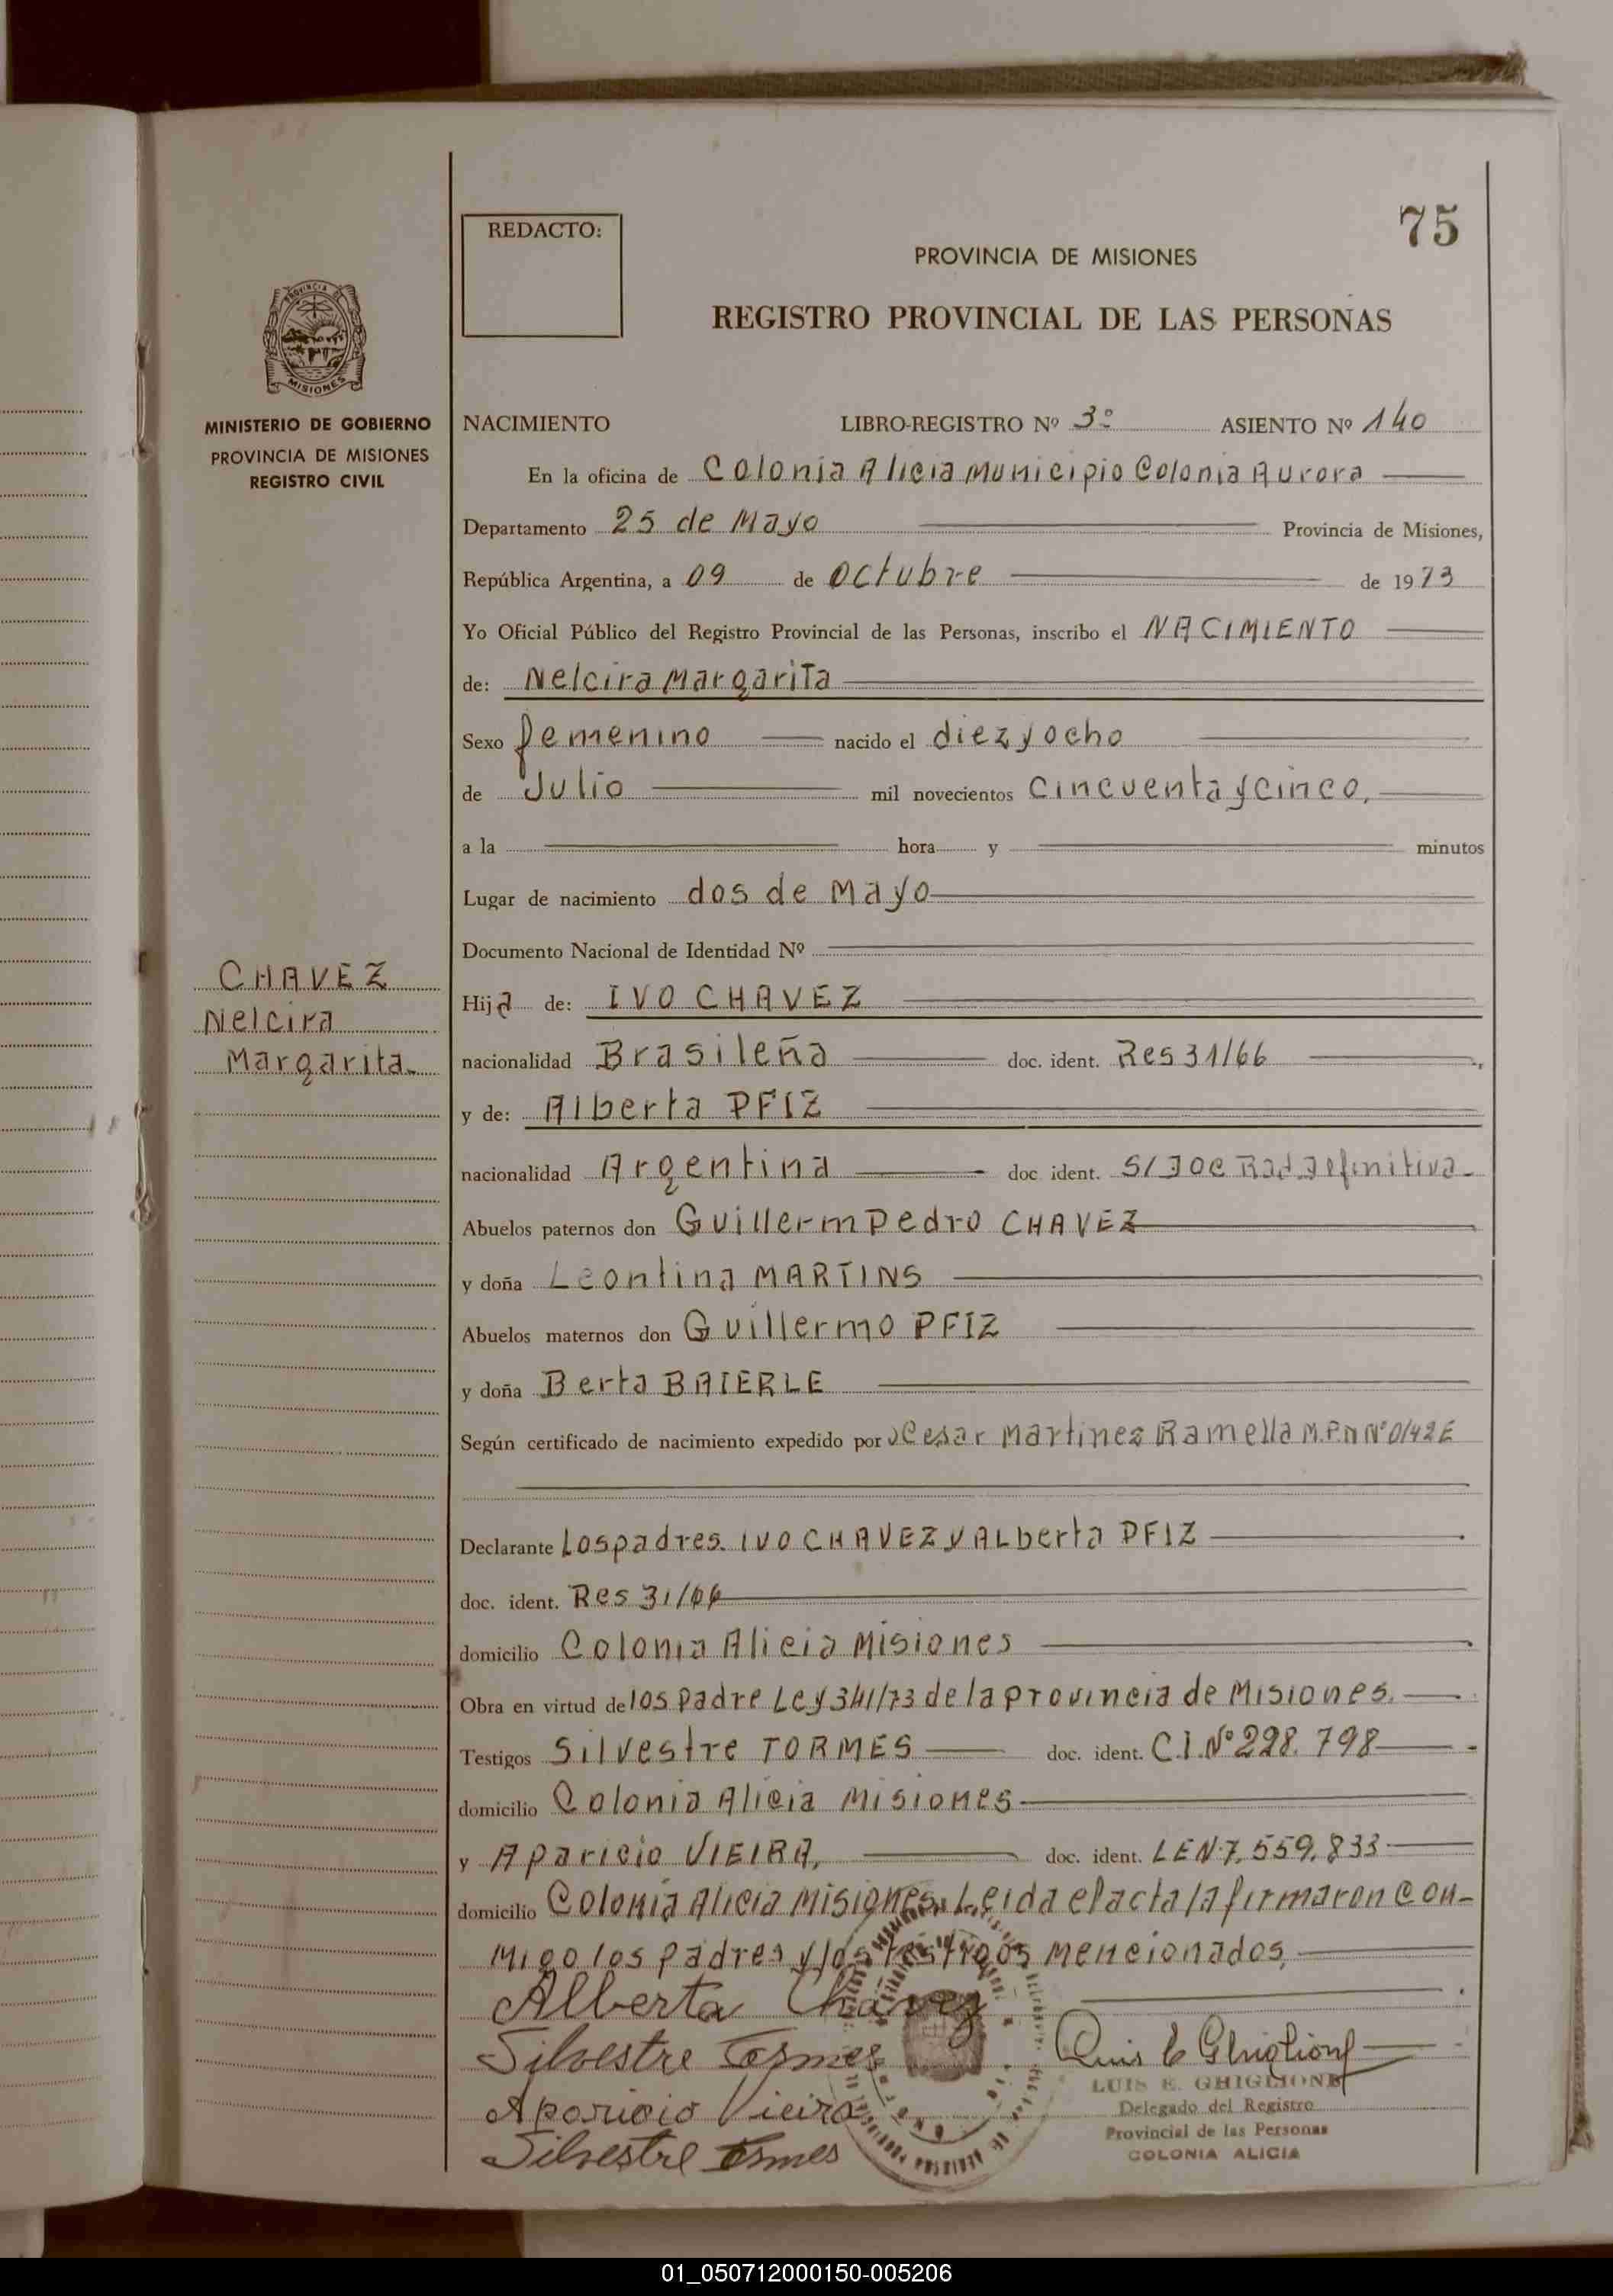 75
REDACTO:
PROVINCIA DE MISIONES
REGISTRO PROVINCIAL DE LAS PERSONAS
PROVINCIA DE
MISIONES
MINISTERIO DE GOBIERNO
PROVINCIA DE MISIONES
REGISTRO CIVIL
NACIMIENTO LIBRO-REGISTRO Nº 3º ASIENTO Nº 140
En la oficina de Colonia Alicia Municipio Colonia Aurora
Departamento 25 de Mayo Provincia de Misiones,
República Argentina, a 09 de octubre de 1973
Yo Oficial Público del Registro Provincial de las Personas, inscribo el NACIMIENTO
de: Nelcira Margarita
Sexo femenino nacido el diez y ocho
de Julio mil novecientos cincuenta y cinco,
a la hora y minutos
Lugar de nacimiento dos de Mayo
Documento Nacional de Identidad Nº
CHAVEZ
Nelcira
Margarita
Hija de: IVO CHAVEZ
nacionalidad Brasileña doc. ident. Res 31/66
y de: Alberta PFIZ
nacionalidad Argentina doc ident. S/Doc Rad definitiva
Abuelos paternos don Guillerm Pedro CHAVEZ
y doña Leontina MARTINS
Abuelos maternos don Guillermo PFIZ
y doña Berta BAIERLE
Según certificado de nacimiento expedido por Cesar Martinez Ramella M.P.N Nº 0142E
Declarante Los padres. IVO CHAVEZ y ALberta PFIZ
doc. ident. Res 31/66
domicilio Colonia Alicia Misiones
Obra en virtud de los padre Ley 341/73 de la provincia de Misiones.
Testigos Silvestre TORMES doc. ident. C.I. Nº 228.798
domicilio Colonia Alicia Misiones
y Aparicio VIEIRA, doc. ident. LEN 7,559,833
domicilio Colonia Alicia Misiones. Leida el acta la firmaron con-
migo los padres y los testigos mencionados,
Alberta Chavez
Silvestre Tormes
Luis E Ghiglione
LUIS E. GHIGLIONE
Aparicio Vieira
Delegado del Registro
Provincial de las Personas
Silvestre Tormes
COLONIA ALICIA
01_050712000150-005206